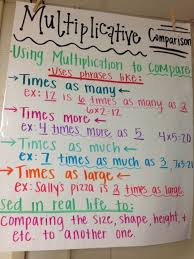 Multiplicative Comparison
-Using Multiplication to Compare
-Uses phrases like:
→Times as many←
ex: 12 is 6 times as many as 2
6x2=12
→Times more←
ex: 4 times more as 5
→Times as much←
ex: 7 times as much as 3, 7x3=21
→Times as large←
ex: Sally's pizza is 3 times as large.
sed in real life to:
Comparing the size, shape, height, +
etc. to another one.